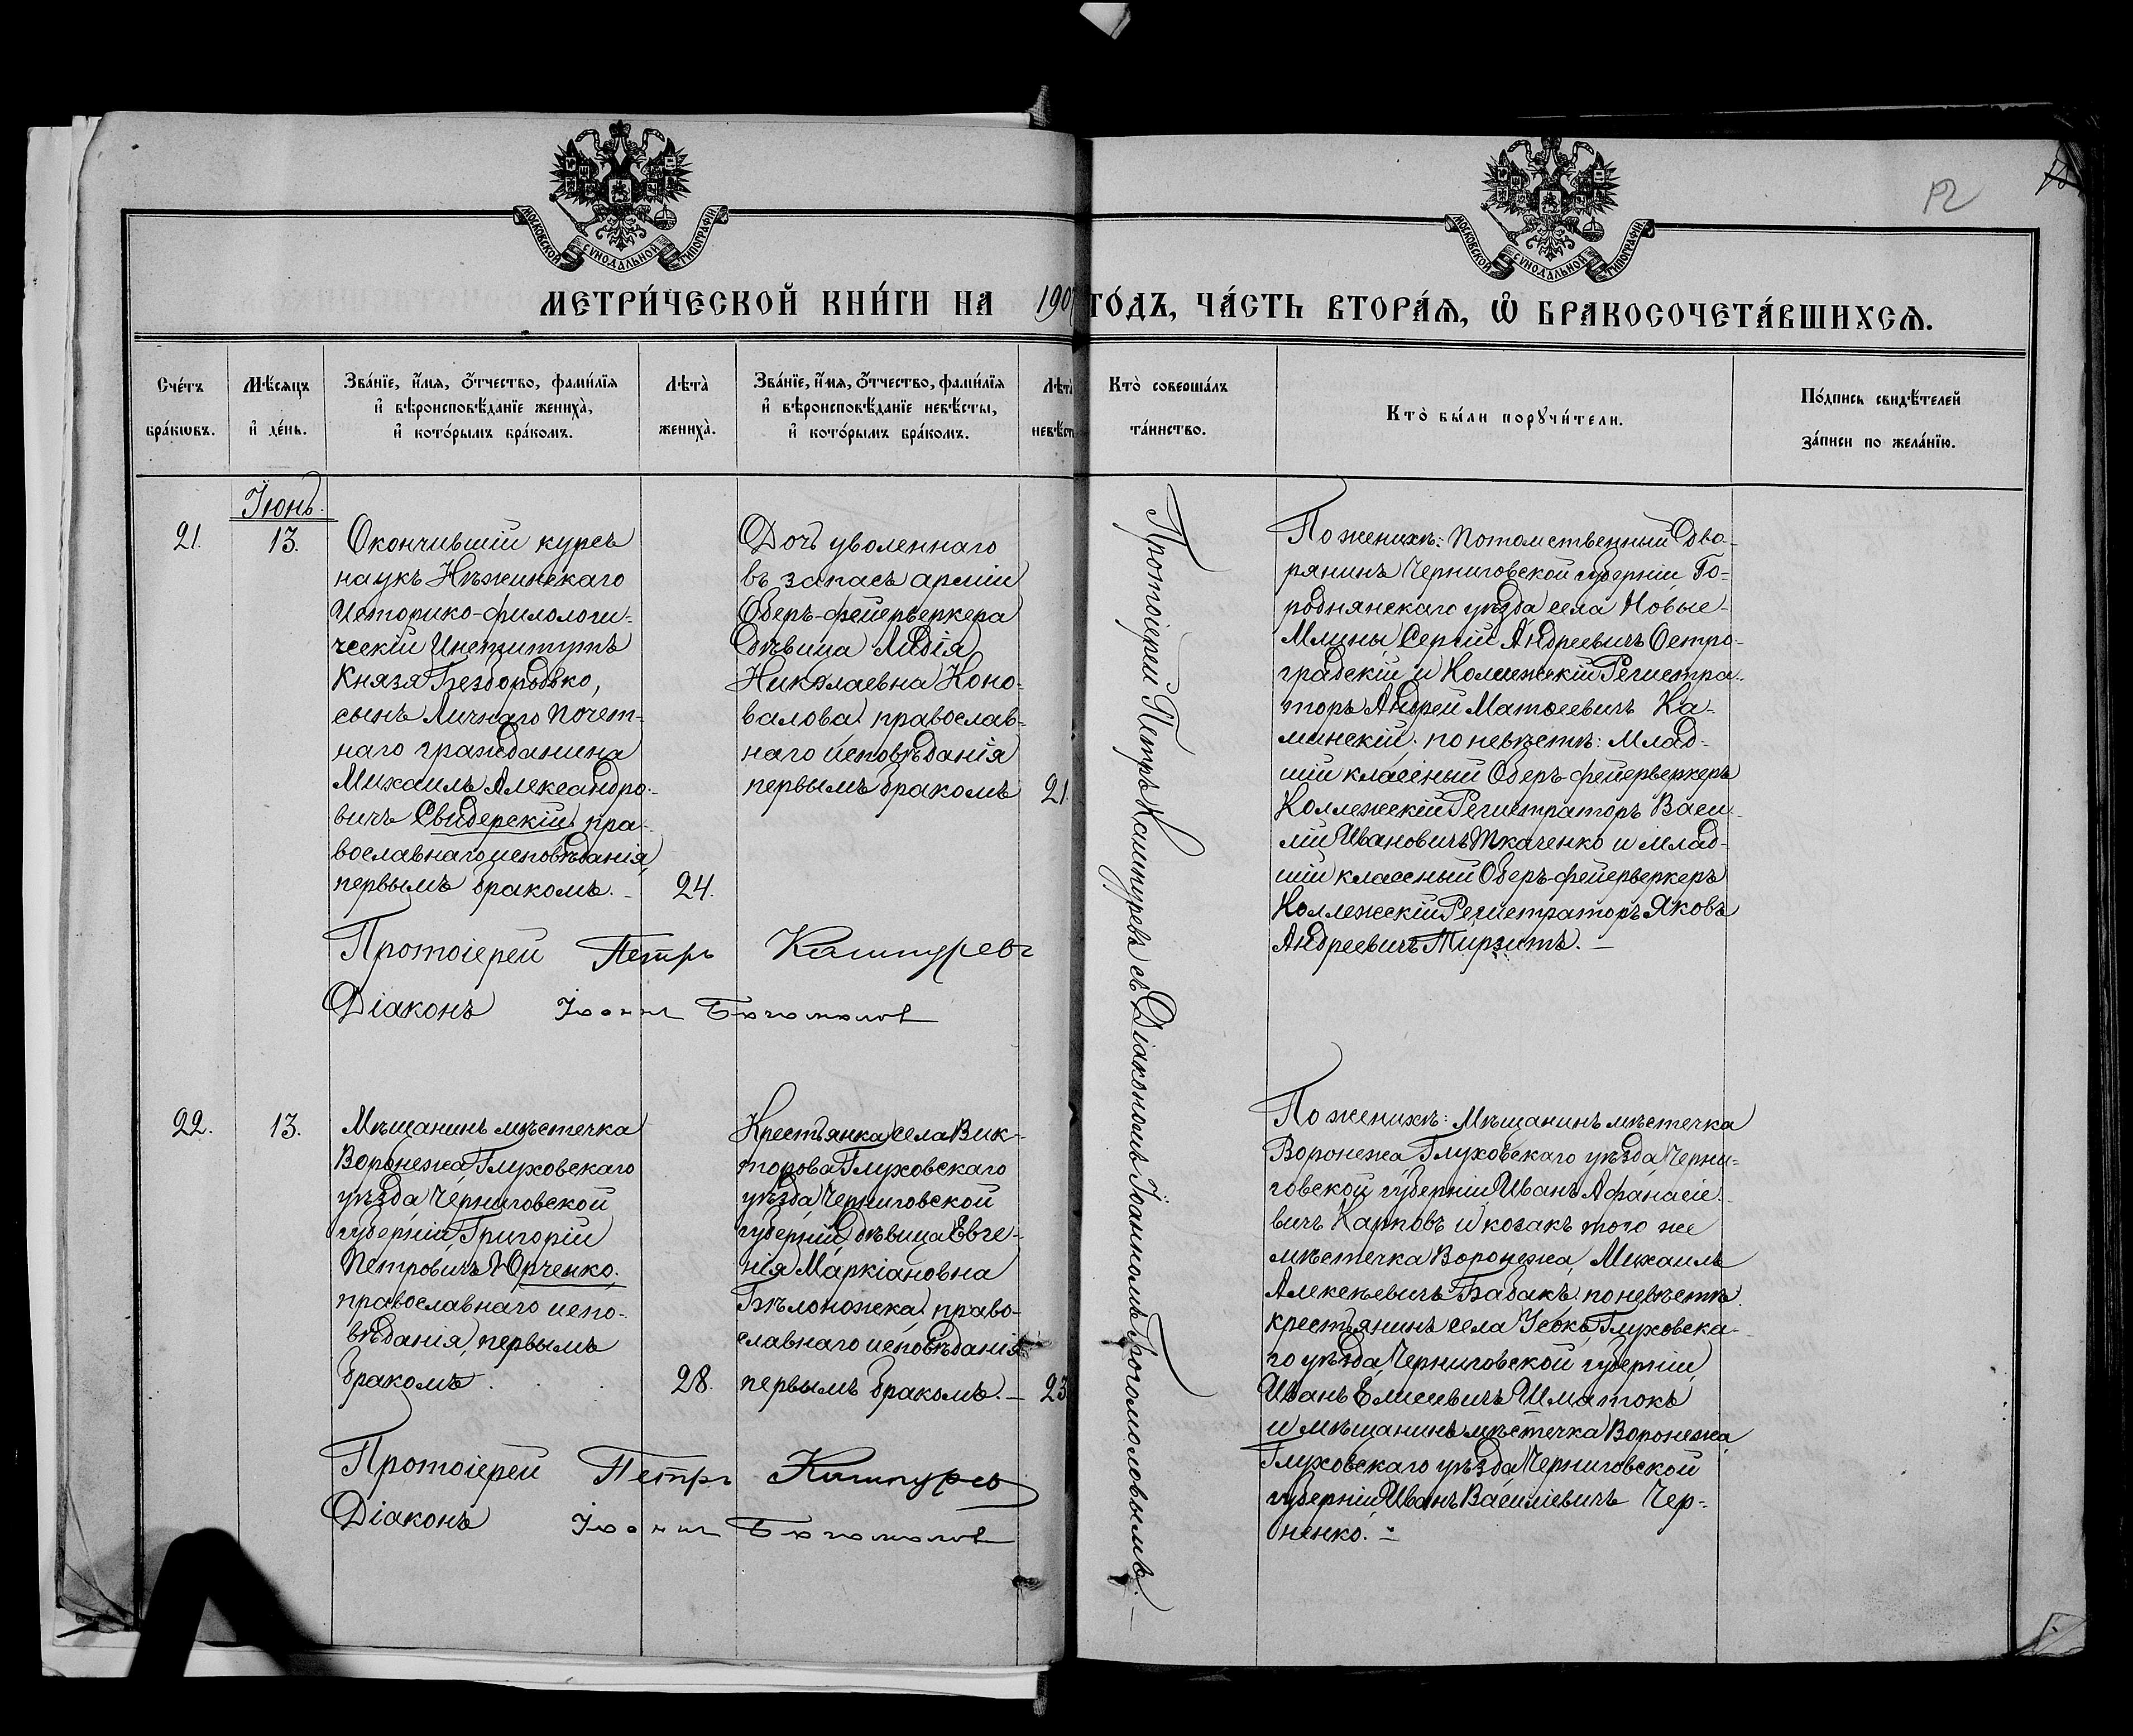 МОСКОВСКОЙ СѴНОДАЛЬНОЙ ТИПОГРАФІИ.
МОСКОВСКОЙ СѴНОДАЛЬНОЙ ТИПОГРАФІИ.
12
МЕТРИ́ЧЕСКОЙ КНИ́ГИ НА 190
ГО́ДЪ, ЧА́СТЬ ВТОРА́Я, Ѽ БРАКОСОЧЕТА́ВШИХСЯ.
Сче́тъ бра́кѡвъ.
Мѣ́сяцъ и҆ де́нь.
Зва́нїе, и҆́мя, о҆́тчество, фами́лїя
и҆ вѣроисповѣ́данїе жениха̀,
и҆ кото́рымъ бра́комъ.
Лѣта̀ жениха̀.
Зва́нїе, и҆́мя, о҆́тчество, фами́лїя
и҆ вѣроисповѣ́данїе невѣ́сты,
и҆ кото́рымъ бра́комъ.
Лѣта̀
невѣ́ст
Кто̀ соверша́лъ
та́инство.
Кто̀ бы́ли порꙋчи́тели.
По́дпись свидѣ́телей
за́писи по жела́нїю.
Іюнь.
21.
13.
Окончившій курсъ
наукъ Нѣжинскаго
Историко-филологи-
ческій Институтъ
Князя Безбородько,
сынъ Личнаго Почет-
наго гражданина
Михаилъ Александро-
вичъ Свидерскій, пра-
вославнаго исповѣданія,
первымъ бракомъ.
24.
Дочь уволеннаго
въ запасъ арміи
Оберъ-фейерверкера
дѣвица Лидія
Николаевна Коно-
валова православ-
наго исповѣданія
первымъ бракомъ
21.
Протоіерей Петръ Кашпуревъ
Діаконъ Іоаннъ Богомолов
Протоіерей Петръ Кашпуревъ съ Діакономъ Іоанномъ Богомоловымъ.
По женихѣ: Потомственный Дво-
рянинъ Черниговской губерніи Го-
роднянскаго уѣзда села Новые-
Млины Сергій Андреевичъ Остро-
градскій и Коллежскій Регистра-
торъ Андрей Матвеевичъ Ка-
минскій. по невѣстѣ: Млад-
шій классный Оберъ-фейерверкеръ
Коллежскій Регистраторъ Васи-
лій Ивановичъ Ткаченко и млад-
шій классный Оберъ-фейерверкеръ
Коллежскій Регистраторъ Яковъ
Андреевичъ
22.
13.
Мѣщанинъ мѣстечка
Воронежа, Глуховскаго
уѣзда Черниговской
губерніи, Григорій
Петровичъ Юрченко.
православнаго испо-
вѣданія, первымъ
бракомъ.
28.
Крестьянка села Вик-
торова Глуховскаго
уѣзда Черниговской
губерніи, дѣвица Евге-
нія Маркіановна
Бѣлоножека, право-
славнаго исповѣданія
первымъ бракомъ.
23
Протоіерей Петръ Кашпурев
Діаконъ Іоаннъ Богомолов
По женихѣ: Мѣщанинъ мѣстечка
Воронежа Глуховскаго уѣзда, Черни-
говской губерніи Иванъ Афанасіе-
вичъ Карповъ и козакъ того же
мѣстечка Воронежа, Михаилъ
Алексѣевичъ Бабакъ. по невѣстѣ
крестьянинъ села Усокъ, Глуховска-
го уѣзда, Черниговской губерніи,
Иванъ Елисеевичъ Шматокъ
и мѣщанинъ мѣстечка Воронежа,
Глуховскаго уѣзда, Черниговской
губерніи Иванъ Васильевичъ Чер-
ненко.